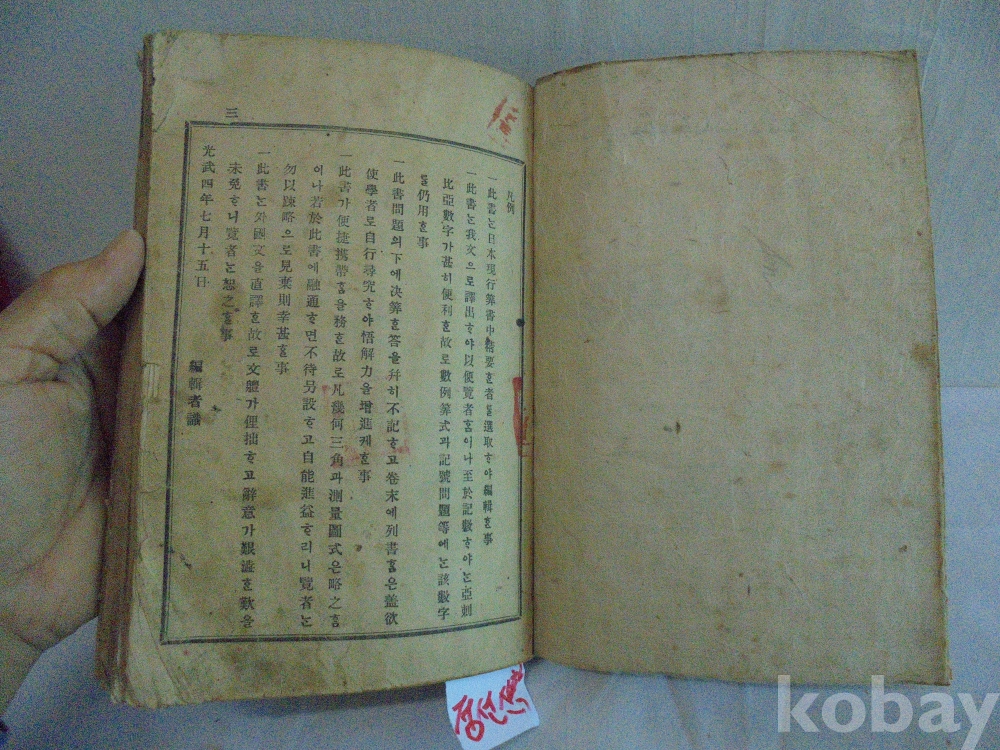 凡例
一此書ᄂᆞᆫ日本現行筭書中精要ᄒᆞᆫ者ᄅᆞᆯ選取ᄒᆞ야編輯ᄒᆞᆫ事
一此書ᄂᆞᆫ我文으로譯出ᄒᆞ야以便覽者ᄒᆞᆷ이나至於記數ᄒᆞ야ᄂᆞᆫ亞剌
比亞數字가甚히便利ᄒᆞᆫ故로數例筭式과記號問題等에ᄂᆞᆫ該數字
ᄅᆞᆯ仍用ᄒᆞᆫ事
一此書問題의下에決筭ᄒᆞᆫ答을幷히不記ᄒᆞ고卷末에列書ᄒᆞᆷ은盖欲
使學者로自行尋究ᄒᆞ야悟解力을增進케ᄒᆞᆫ事
一此書가便捷携帶ᄒᆞᆷ을務ᄒᆞᆫ故로凡幾何三角과測量圖式은略之ᄒᆞᆷ
이나若於此書에融通ᄒᆞ면不待另設ᄒᆞ고自能進益ᄒᆞ리니覽者ᄂᆞᆫ
勿以踈略으로見棄則幸甚ᄒᆞᆫ事
一此書ᄂᆞᆫ外國文을直譯ᄒᆞᆫ故로文體가俚拙ᄒᆞ고辭意가艱澁ᄒᆞᆫ歎을
未免ᄒᆞ니覽者ᄂᆞᆫ恕之ᄒᆞᆯ事
光武四年七月十五日
編輯者識
三
kobay